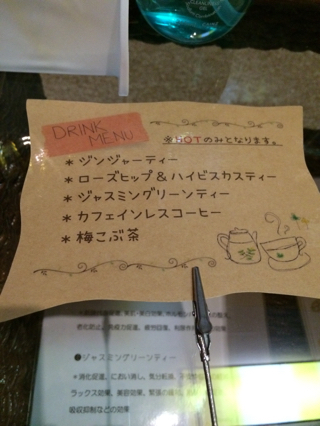 DRINK
MENU
※HOTのみとなります。
* ジンジャーティー
* ローズヒップ&ハイビスカスティー
* ジャスミングリーンティー
* カフェインレスコーヒー
* 梅こぶ茶
●ジャスミングリーンティー
* 消化促進、におい消し、気分転換、
ラックス効果、美容効果、緊張の緩和、
吸収抑制などの効果